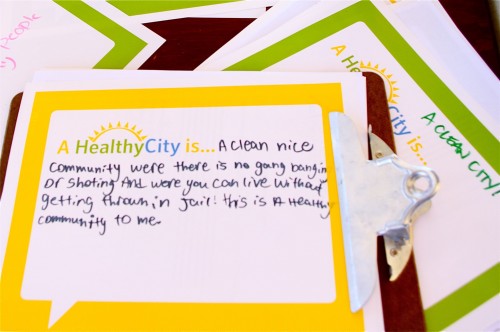 y People
A HealthyCity is... A clean nice
community were there is no gang bangin
or shoting And were you can live without
getting thrown in jail! this is A Healthy
community to me.
A HealthyCity is...
A CLEAN CITY!